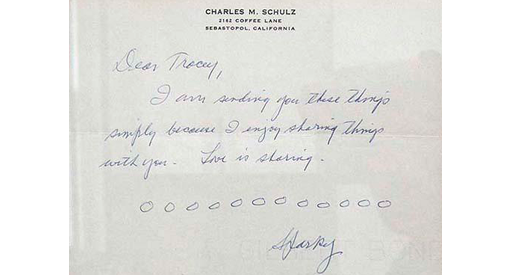 CHARLES M. SCHULZ
2162 COFFEE LANE
SEBASTOPOL, CALIFORNIA
Dear Tracey,
I am sending you these things
simply because I enjoy sharing things
with you. Love is sharing.
O O O O O O O O O O O O
Sparky